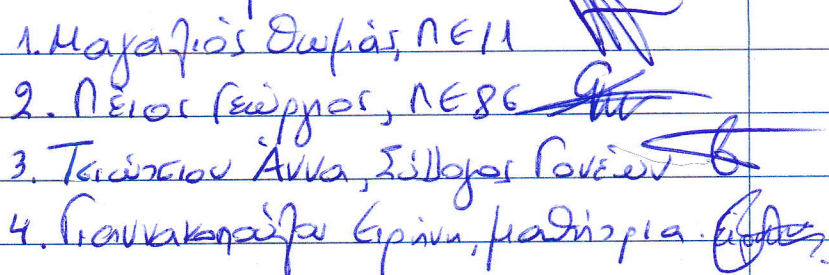 1. Μαγαλιός Θωμάς, ΠΕ11
2. Πέιος Γεώργιος, ΠΕ86
3. Τσιώτσιου Άννα, Σύλλογος Γονέων
4. Γιαννακοπούλου Ειρήνη, μαθήτρια.